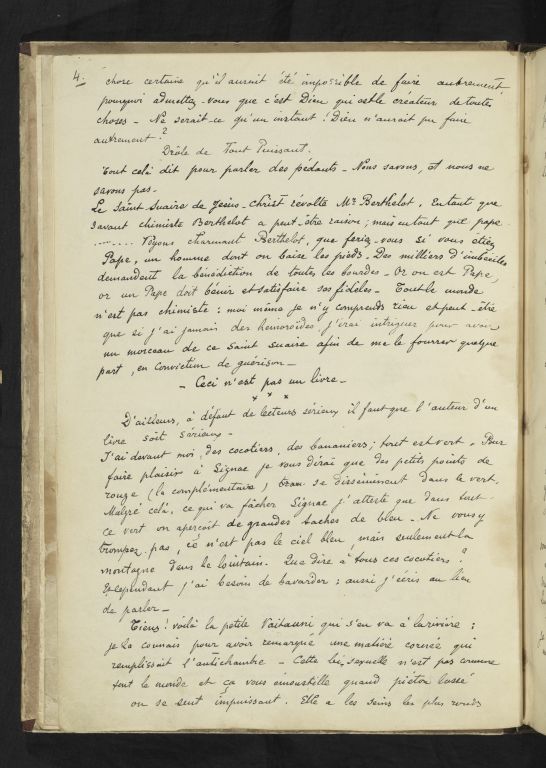 4.
chose certaine qu'il aurait été impossible de faire autrement
pourquoi admettez-vous que c'est Dieu qui est le créateur de toutes
choses - Ne serait-ce qu'un instant! Dieu n'aurait pu faire
autrement?
Drôle de Tout Puissant.
Tout celà dit pour parler des pédants - Nous savons, et nous ne
savons pas -
Le Saint Suaire de Jésus-Christ révolte Mr Berthelot. En tant que
savant chimiste Berthelot a peut-être raison; mais en tant que pape
........ Voyons charmant Berthelot, que feriez-vous si vous étiez
Pape, un homme dont on baise les pieds. Des milliers d'imbéciles
demandent la bénédiction de toutes les bourdes - Or on est Pape,
or un Pape doit bénir et satisfaire ses fidèles - Tout le monde
n'est pas chimiste: moi même je n'y comprends rien et peut-être
que si j'ai jamais des hémoroïdes j'irai intriguer pour avoir
un morceau de ce Saint Suaire afin de me le fourrer quelque
part, en conviction de guérison -
- Ceci n'est pas un livre -
* * *
D'ailleurs, à défaut de lecteurs sérieux il faut que l'auteur d'un
livre soit sérieux -
J'ai devant moi, des cocotiers, des bananiers; tout est vert. Pour
faire plaisir à Signac je vous dirai que des petits points de
rouge (la complémentaire) se disséminent dans le vert.
Malgré celà, ce qui va fâcher Signac j'atteste que dans tout
ce vert on aperçoit de grandes taches de bleu - Ne vous y
trompez pas, ce n'est pas le ciel bleu, mais seulement la
montagne dans le lointain. Que dire à tous ces cocotiers?
Et cependant j'ai besoin de bavarder; aussi j'écris au lieu
de parler -
Tiens! voilà la petite Vaitauni qui s'en va à la rivière:
je la connais pour avoir remarqué une matière cornée qui
remplissait l'antichambre - Cette bi-sexuelle n'est pas comme
tout le monde et ça vous émoustille quand piéton lassé
on se sent impuissant. Elle a les seins les plus ronds